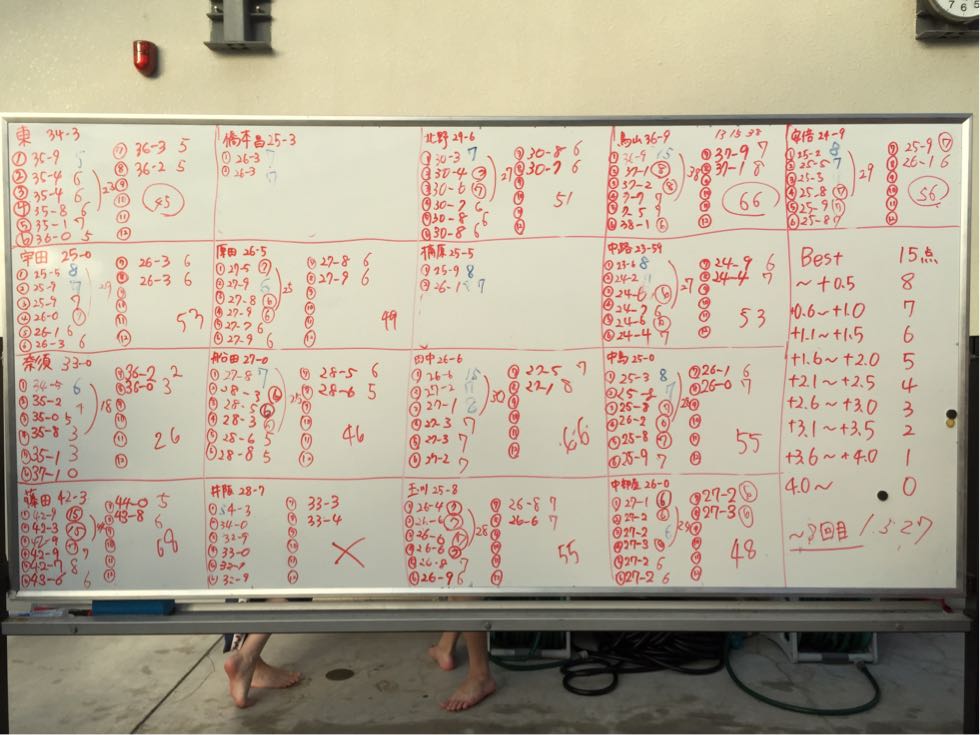 東 34-3
① 35-9 5
② 35-4 6
③ 35-4 6
④ 35-8 6
⑤ 35-1 7
⑥ 36-0 5
23
⑦ 36-3 5
⑧ 36-2 5
⑨
⑩
⑪
⑫
45
橋本昌 25-3
① 26-3 7
② 26-3 7
北野 29-6
① 30-3 7
② 30-4
③ 30-6 7
④ 30-7 6
⑤ 30-8 6
⑥ 30-8 6
27
⑦ 30-8 6
⑧ 30-7 6
51
鳥山 36-9
13 15 38
① 36-9 15
② 37-1 8
③ 37-2 8
⑥ 38-1 6
38
⑦ 37-9 7
⑧ 37-1 8
66
安倍 24-9
① 25-2 8
② 25-5 7
③ 25-3
④ 25-8 7
⑤ 25-9 7
⑥ 25-8 7
29
⑦ 25-9 7
⑧ 26-1 6
56
宇田 25-0
① 25-5 8
② 25-9 7
③ 25-9 7
④ 26-0 7
⑤ 26-1 6
⑥ 26-3 6
29
⑦ 26-3 6
⑧ 26-3 6
53
原田 26-5
① 27-5 7
② 27-9 6
③ 27-8 6
④ 27-9 6
⑤ 27-7 6
⑥ 27-9 6
25
⑦ 27-8 6
⑧ 27-9 6
49
楠原 25-5
① 25-9 8
② 26-1 7
中路 23-59
① 23-6 8
② 24-2
③ 24-0 6
④ 24-7 6
⑤ 24-6 6
⑥ 24-4 7
27
⑦ 24-9 6
⑧ 24-4 7
53
Best 15点
~ +0.5 8
+0.6~+1.0 7
+1.1~+1.5 6
+1.6~+2.0 5
+2.1~+2.5 4
+2.6~+3.0 3
+3.1~+3.5 2
+3.6~+4.0 1
4.0~ 0
奈須 33-0
① 34-5 6
② 35-2
③ 35-0 5
④ 35-8 3
⑤ 35-1 3
⑥ 37-1 0
18
⑦ 36-2 2
⑧ 36-0 3
26
船田 27-0
① 27-8 7
② 28-3 6
③ 28-5 6
④ 28-3
⑤ 28-6 5
⑥ 28-8 5
25
⑦ 28-5 6
⑧ 28-6 5
46
田中 26-6
① 26-6 15
② 27-2
③ 27-1
④ 27-3 7
⑤ 27-3 7
⑥ 27-2 7
30
⑦ 27-5 7
⑧ 27-1 8
66
中島 25-0
① 25-3 8
② 25-8 7
③ 25-8 7
④ 26-2 6
⑤ 25-8 7
⑥ 25-9 7
28
⑦ 26-1 6
⑧ 26-0 7
55
篠田 42-3
① 42-9
② 42-3 15
③ 42-9 7
④ 42-9 7
⑤ 42-7 8
⑥ 43-6 6
⑦ 44-0 5
⑧ 43-8 6
68
井阪 28-7
① 34-3
② 34-0
③ 32-9
④ 33-0
⑥ 32-9
⑦ 33-3
⑧ 33-4
×
玉川 25-8
① 26-4 7
② 26-6 7
③ 26-6
④ 26-6
⑤ 26-8 7
⑥ 26-9 6
28
⑦ 26-8 7
⑧ 26-6 7
55
中部屋 26-0
① 27-1 6
② 27-2 6
③ 27-2 6
④ 27-3 6
⑤ 27-2 6
⑥ 27-2 6
24
⑦ 27-2 6
⑧ 27-3 6
48
~8回目 15:27